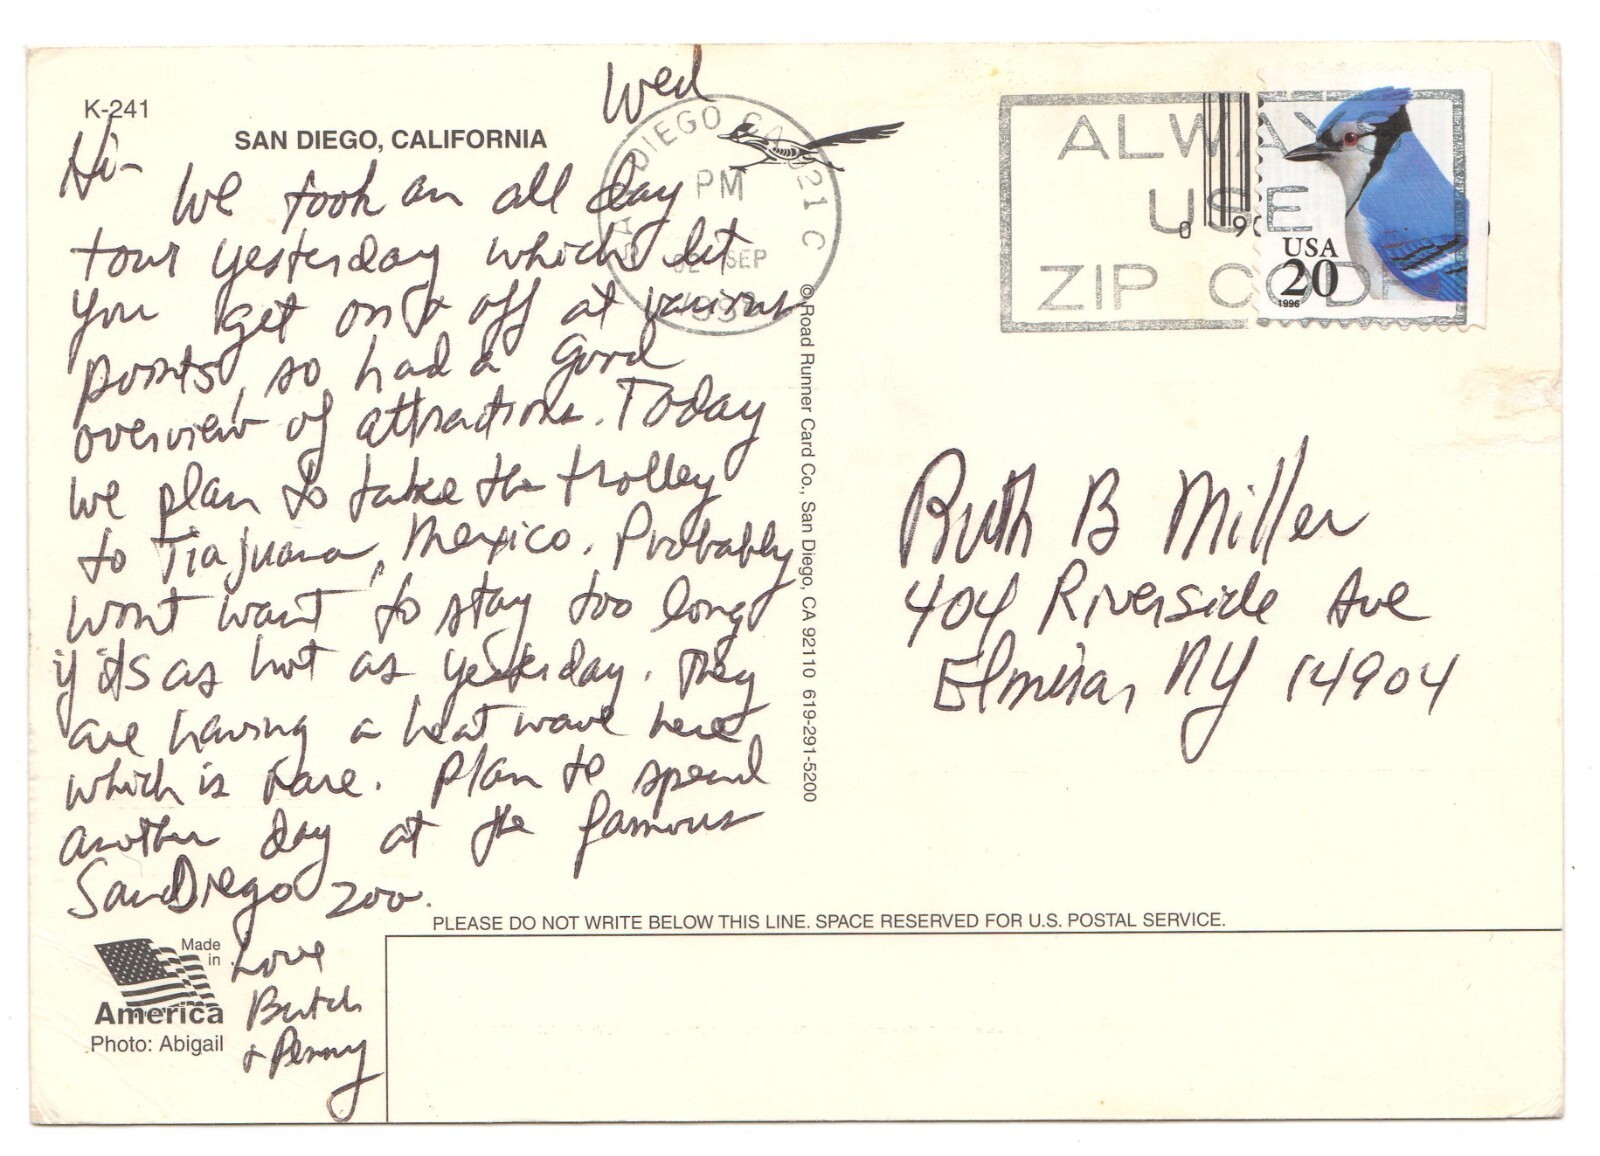 K-241
Wed
SAN DIEGO, CALIFORNIA
Hi-
We took an all day
tour yesterday which let
you get on & off at various
points, so had a good
overview of attractions. Today
we plan to take the trolley
to Tiajuana, Mexico. Probably
wont want to stay too long
if its as hot as yesterday. They
are having a heat wave here
which is rare. Plan to spend
another day at the famous
San Diego zoo.
Love
Butch
& Penny
Made
in
America
Photo: Abigail
DIEGO CA 921 C
PM
SEP
© Road Runner Card Co., San Diego, CA 92110 619-291-5200
ALWAYS
USE
ZIP CODE
USA
20
1996
Ruth B Miller
404 Riverside Ave
Elmira, NY 14904
PLEASE DO NOT WRITE BELOW THIS LINE. SPACE RESERVED FOR U.S. POSTAL SERVICE.